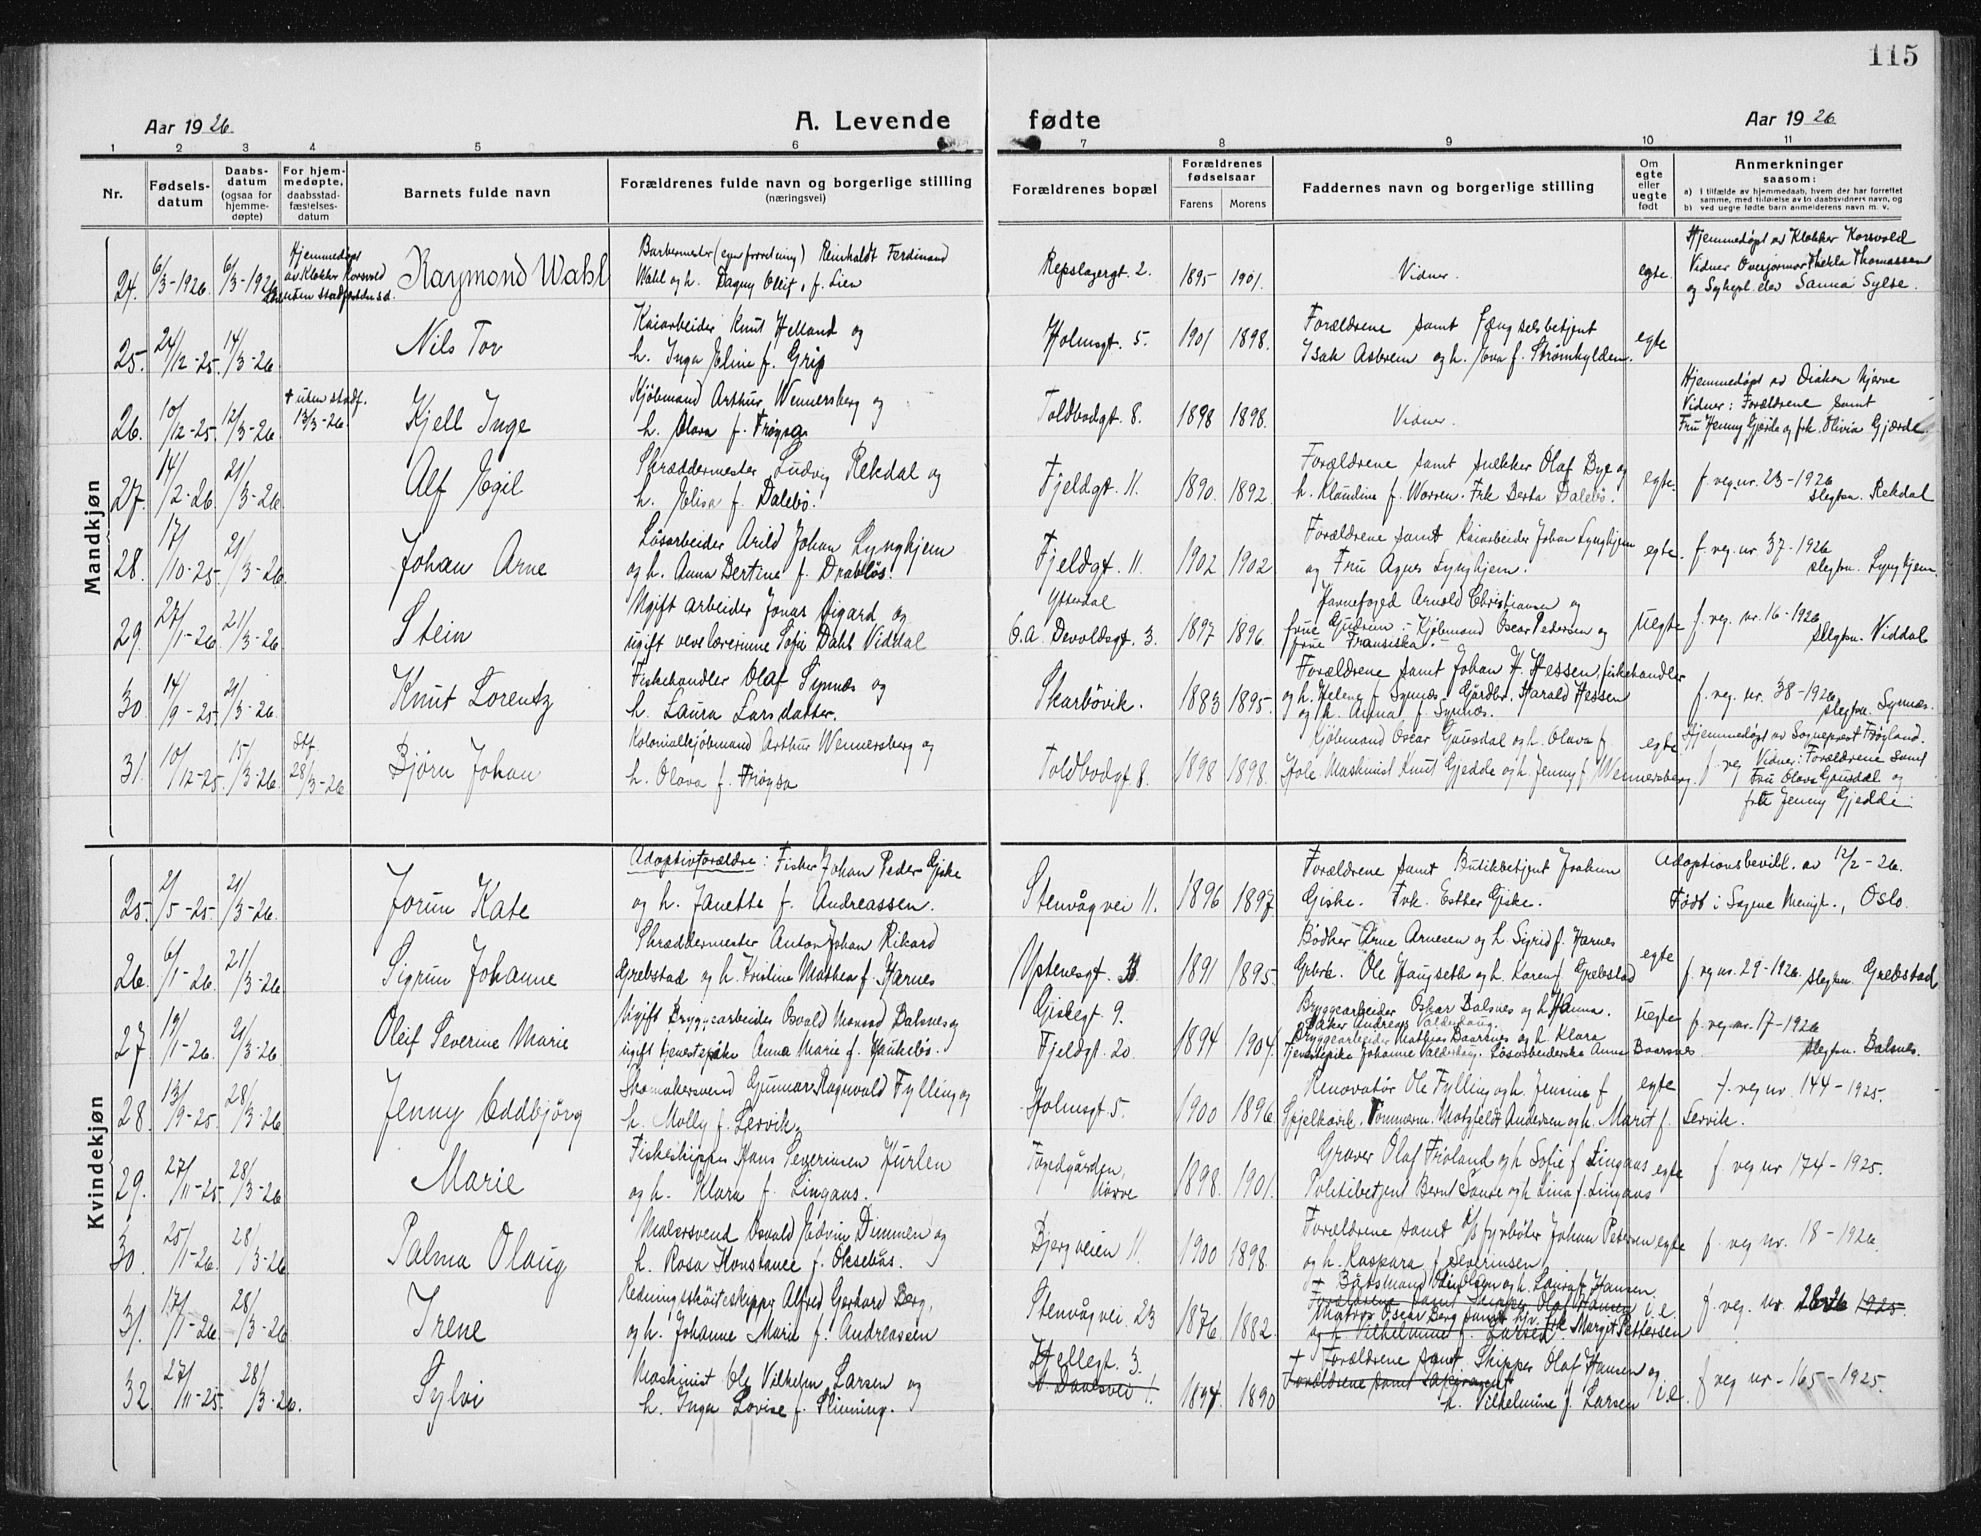 115
Aar 1926.
A. Levende fødte
Aar 1926
1 2 3 4 5 6 7 8 9 10 11
Nr.
Fødsels-
datum
Daabs-
datum
(ogsaa for
hjemme-
døpte)
For hjem-
medøpte,
daabsstad-
fæstelses-
datum
Barnets fulde navn
Forældrenes fulde navn og borgerlige stilling
(næringsvei)
Forældrenes bopæl
Forældrenes
fødselsaar
Farens Morens
Faddernes navn og borgerlige stilling
Om
egte
eller
uegte
født
Anmerkninger
saasom:
a) I tilfælde av hjemmedaab, hvem der har forrettet
samme, med tilføielse av to daabsvidners navn, og
b) ved uegte fødte barn anmelderens navn m. v.
Mandkjøn
24. 6/3-1926. 6/3-1926
Hjemmedøpt
av Klokker Korsvold
Raymond Wahl
Barbermester (egen forretning) Reinholdt Ferdinand
Wahl og h. Dagny Oleif, f. Lien
Repslagergt. 2. 1895 1901. Vidner. egte.
Hjemmedøpt av Klokker Korsvold
Vidner Overjormor Thekla Thomassen
og Sykepl. elev Sanna Sylte.
25. 24/12-25. 14/3-26.
Nils Tor
Kaiarbeider Knut Helland og
h. Inga Eline f. Grip
Holmsgt. 5. 1901 1898.
Forældrene samt Fængselsbetjent
Isak Asbrem og h. Eva f. Strømhylden.
egte
26. 10/12-25. 12/3-26.
+ uden stadf.
13/3-26.
Kjell Inge
Kjøbmand Arthur Wennersberg og
h. Olava f. Frøysa
Toldbodgt. 8. 1898 1898. Vidner.
Hjemmedøpt av Diakon Hjerve
Vidner: Forældrene samt
Fru Henny Gjerde og frk. Olivia Gjærde.
27. 14/2-26. 21/3-26.
Alf Egil
Skræddermester Ludvig Rekdal og
h. Elisa f. Dalebø.
Fjeldgt. 11. 1890. 1892.
Forældrene samt snekker Olaf Bye og
h. Klaudine f. Warren. Frk Berta Dalebø.
egte. f. reg. nr. 23-1926
slegtsn. Rekdal
28. 17/10-25. 21/3-26.
Johan Arne
Løsarbeider Arild Johan Lynghjem
og h. Anna Bertine f. Drabløs.
Fjeldgt. 11. 1902 1902
Forældrene samt Kaiarbeider Johan Lynghjem
og Fru Agnes Lynghjem.
egte. f. reg. nr 37-1926
slegtsn. Lynghjem.
29. 27/1-26. 21/3-26
Stein
Ugift arbeider Jonas Aigard og
ugift vevlærerinne Sofie Dahl Viddal
Ytterdal
b.a. Devoldsgt. 3. 1897 1896.
Havnefoged Arnold Christiansen og
frue Gudrun - Kjøbmand Oscar Pedersen og
frue Fransiska.
Uegte f. reg. nr. 16-1926
slegtsn. Viddal
30. 14/9-25. 21/3-26.
Knut Lorentz
Fiskehandler Olaf Synnæs og
h. Laura Larsdatter.
Skarbøvik. 1883 1895.
Forældrene samt Johan H. Hessen, fiskehandler
og h. Helene f Synnæs. Gårdbr. Harald Hessen
og h. Anna f. Synnæs.
f. reg. nr. 38-1926
slegtsn. Synnæs.
31. 10/12-25. 15/3-26.
Stf.
28/3-26
Bjørn Johan
Kolonialkjøbmand Arthur Wennersberg og
h. Olava f. Frøysa
Toldbodgt. 8. 1898 1898.
Kjøbmand Oscar Gausdal og h. Olava f.
Hole Maskinist Knut Gjedde og h. Jenny f. Wennersberg.
egte
Hjemmedøpt av Sogneprest Frøyland.
f. reg Vidner: Forældrene samt
Fru Olava Gausdal og
fru Jenny Gjedde.
Kvindekjøn
25. 2/5-25. 21/3-26.
Jorun Kate
Adoptivforældre: Fisker Johan Peder Giske
og h. Janetta f. Andreassen.
Stenvågvei 11. 1896 1897.
Forældrene samt Butikbetjent Joakim
Giske. Frk. Esther Giske.
Adoptionsbevill. av 12/2-26.
Født i Sagene Menigt., Oslo.
26. 6/1-26. 21/3-26
Sigrun Johanne
Skræddermester Anton Johan Rikard
Grebstad og h. Kristine Mathea f. Harnes
1891 1895.
Bødker Arne Arnesen og h. Sigrid f. Harnes
Grbrk. Ole Haugseth og h. Karen f. Grebstad
egte f. reg nr. 29-1926. slegtsn. Grebstad
27. 19/1-26. 21/3-26
Oleif Severine Marie
Ugift Bryggearbeider Osvald Monrad Balsnes og
ugift tjenestepike Anna Marie f. Haukebø.
Giskegt 9.
Fjeldgt. 20. 1894 1904.
Bryggearbeider Oskar Dalsnes og h. Hanna.
Baker Andreas Valderhaug.
Bryggearbeider Mathias Baarsnes og h Klara
Tjenestepike Johanne Valderhaug. Løsarbeiderske Anna Baarsnes
uegte f. reg nr. 17-1926
slegtsn. Balsnes.
28. 13/9-25. 28/3-26
Jenny Oddbjörg
Skomakersvend Gunnar Ragnvald Fylling og
h. Molly f. Lervik.
Holmsgt. 5. 1900 1896.
Renovatør Ole Fylling og h. Jensine f
Spjelkavik. Tømmerm. Motzfeldt Andersen og h. Marit f. Lervik.
egte f. reg nr. 144-1925.
29. 27/11-25. 28/3-26
Marie
Fiskeskipper Hans Severinsen Hurlen
og h. Klara f. Lingaas.
Fogedgården,
Nørve 1898. 1901.
Graver Olaf Frøland og h Sofie f Lingaas
Politibetjent Bernt Sause og h Lina f. Lingaas
egte f reg nr 174-1925.
30 25/1-26. 28/3-26
Palma Olaug
Malersvend Osvald Edvin Dimmen og
h. Rosa Konstance f. Oksebås.
Bjergveien 11. 1900 1898.
Forældrene samt fyrbøter Johan Petersen
og h. Kaspara f Severinsen
egte f. reg nr. 18-1926.
31. 17/1-26. 28/3-26
Irene
Redningsskøiteskipper Alfred Gerhard Berg,
og h. Johanne Marie f. Andreassen
Stenvågvei 23 1876. 1882.
+ Båtsmand Odin Olsen og h. Laura f. Hansen.
Forældrene samt Skipper Olaf Hansen
Matros Oscar Berg samt Frk Margit Pettersen
og h. Vilhelmine f. Larsen
i.e. f. reg. nr. 26 1925
32. 27/11-25. 28/3-26.
Sylvi
Maskinist Ole Vilhelm Larsen og
h. Inga Lovise f. Slinning.
Hellegt. 3.
1894 1890
+ Forældrene samt Skipper Olaf Hansen og
Forældrene samt
h. Vilhelmine f. Larsen
i.e. f reg nr - 165-1925.